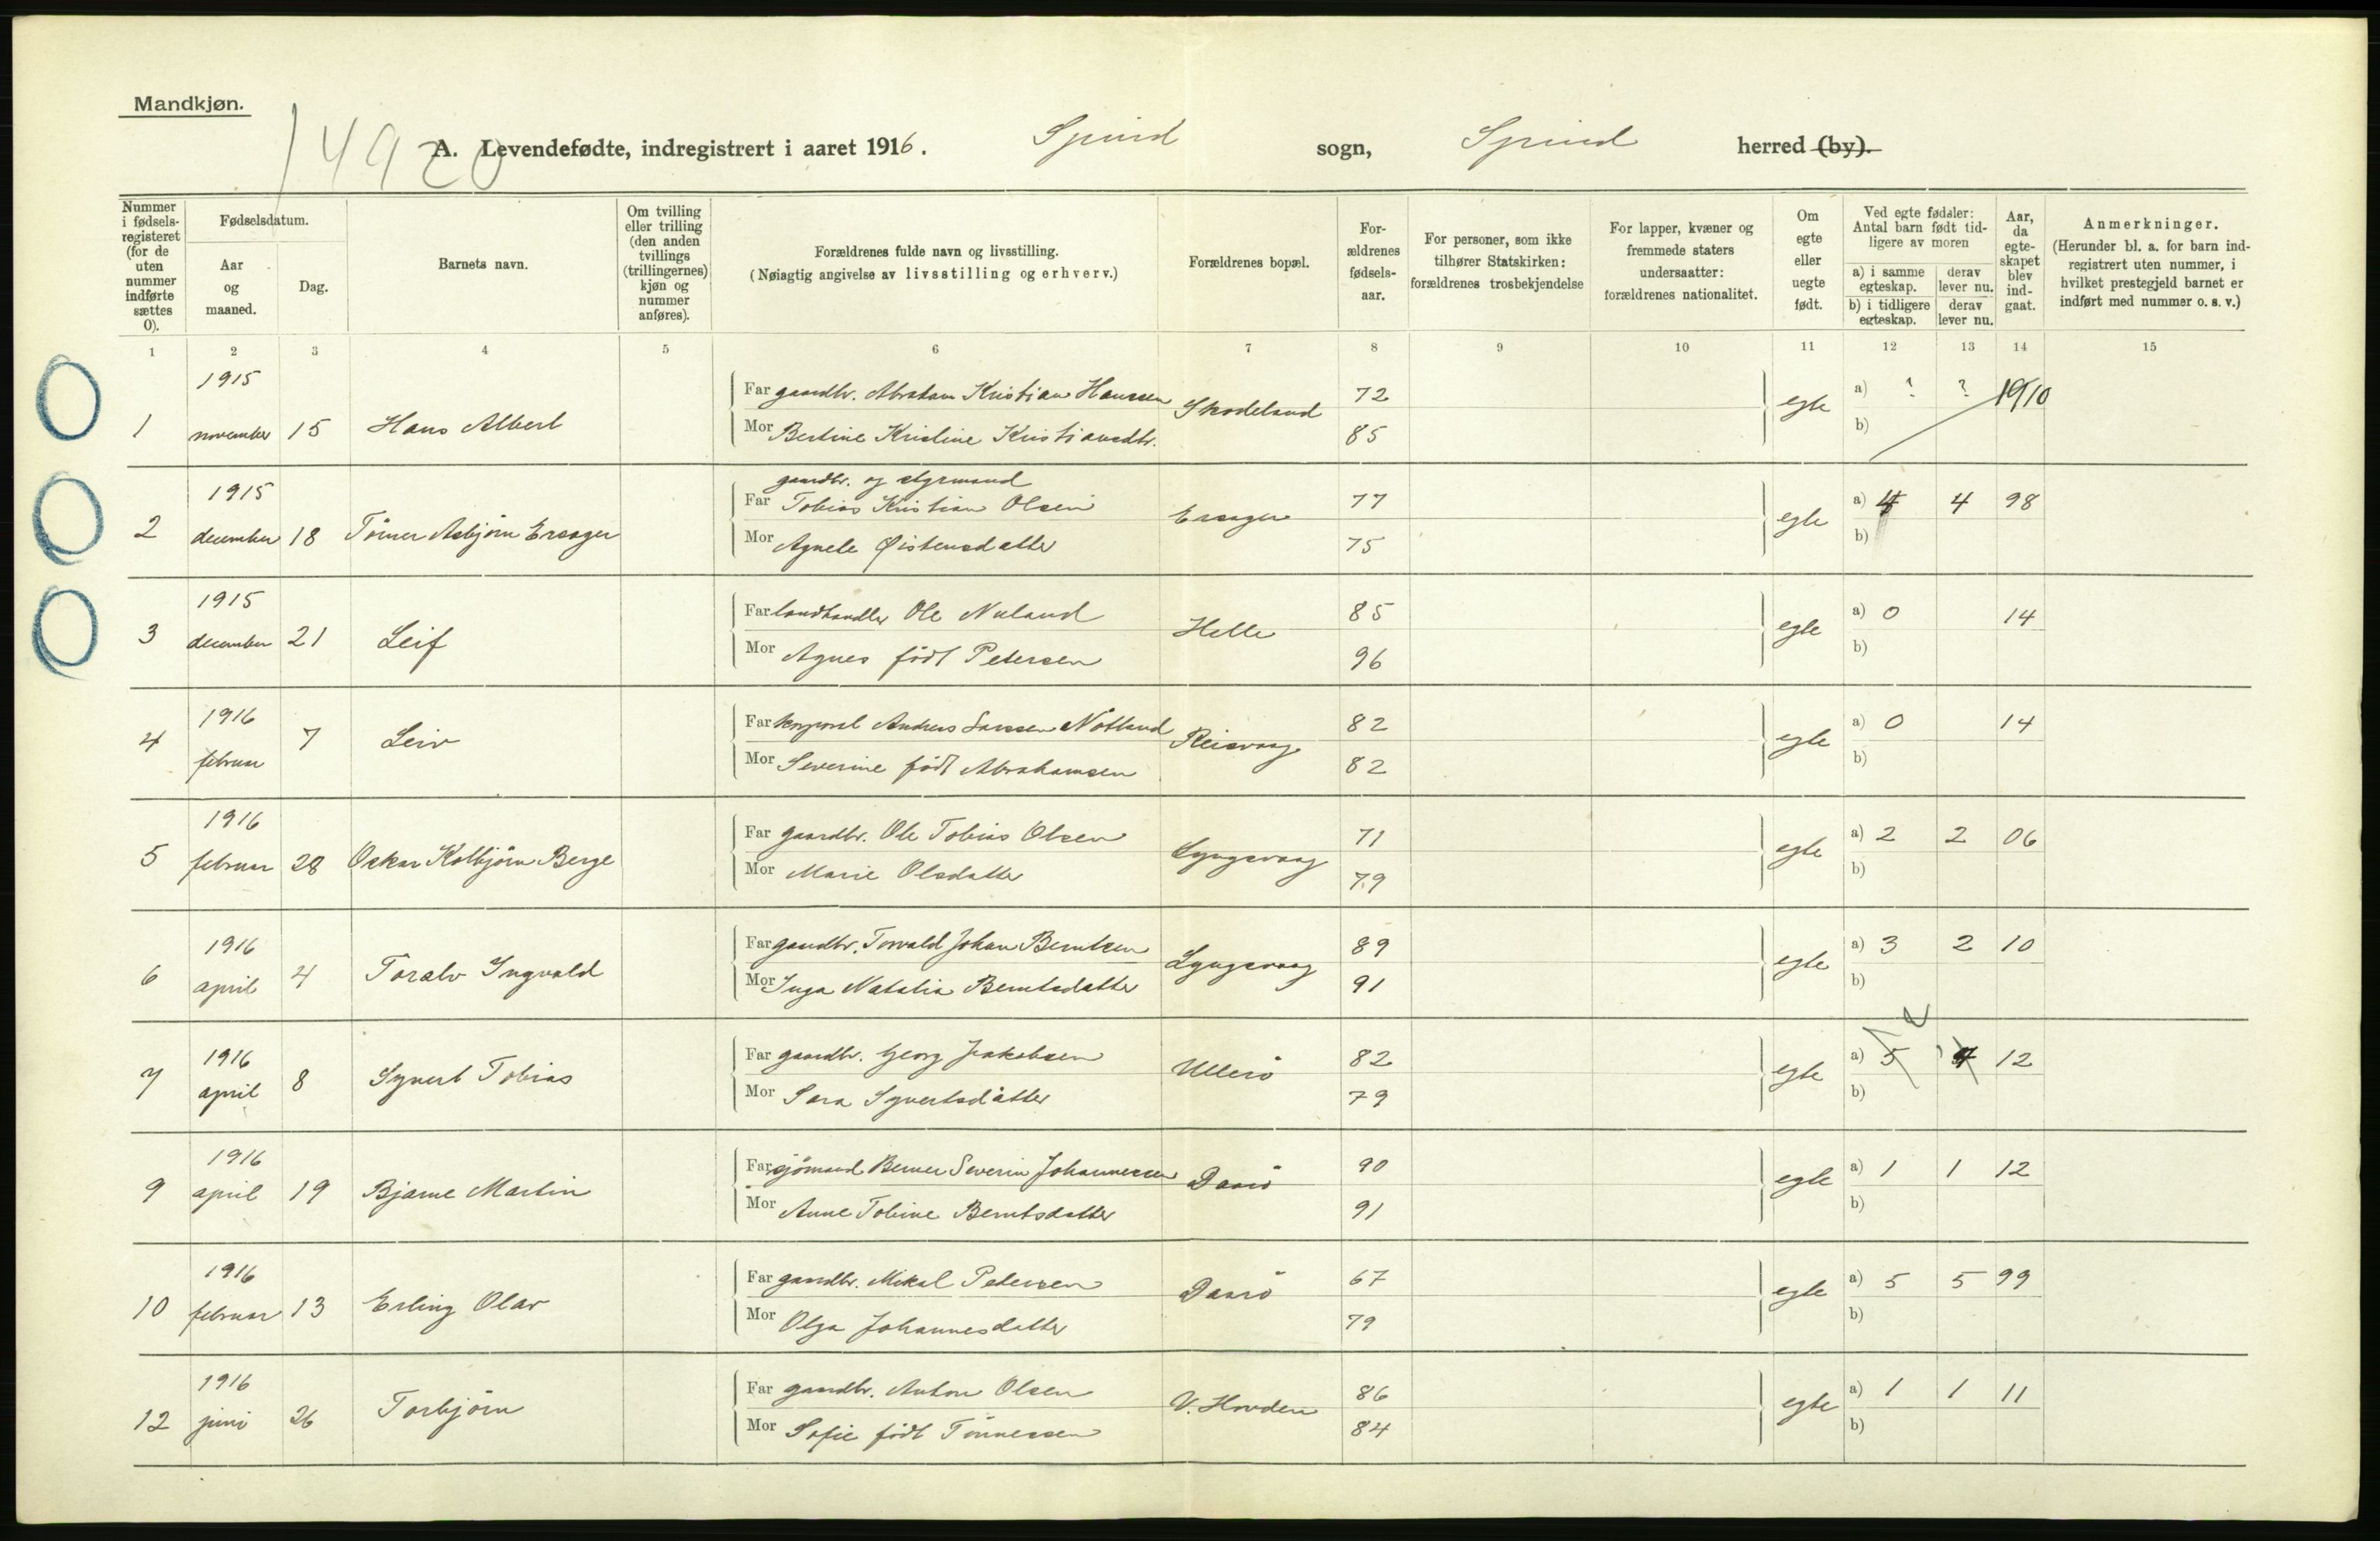 Mandkjøn.
14920
A. Levendefødte, indregistrert i aaret 1916. Spind sogn, Spind herred (by).
Nummer i fødsels-registeret (for de uten nummer indførte sættes 0).
Fødselsdatum.
Aar og maaned.
Dag.
Barnets navn.
Om tvilling eller trilling (den anden tvillings (trillingernes) kjøn og nummer anføres).
Forældrenes fulde navn og livsstilling.
(Nøiagtig angivelse av livsstilling og erhverv.)
Forældrenes bopæl.
For-ældrenes fødsels-aar.
For personer, som ikke tilhører Statskirken: forældrenes trosbekjendelse
For lapper, kvæner og fremmede staters undersaatter: forældrenes nationalitet.
Om egte eller uegte født.
Ved egte fødsler: Antal barn født tid-ligere av moren
a) i samme egteskap.
derav lever nu.
b) i tidligere egteskap.
derav lever nu.
Aar, da egte-skapet blev ind-gaat.
Anmerkninger.
(Herunder bl. a. for barn ind-registrert uten nummer, i hvilket prestegjeld barnet er indført med nummer o. s. v.)
1 2 3 4 5 6 7 8 9 10 11 12 13 14 15
1 1915 november 15 Hans Albert
Far gaardbr. Abraham Kristian Hanssen Skodeland 72 egte a) ? ? 1910
Mor Bertine Kristine Kristiansdtr. 85 b)
2 1915 december 18 Tömer Asbjörn Ersager
gaardbr. og styrmand
Far Tobias Kristian Olsen Ersager 77 egte a) 4 4 98
Mor Agnete Øistensdatter 75 b)
3 1915 december 21 Leif
Far landhandler Ole Nuland Helle 85 egte a) 0 14
Mor Agnes född Petersen 96 b)
4 1916 februar 7 Leiv
Far korporal Andreas Larssen Nötland Reisvaag 82 egte a) 0 14
Mor Severine född Abrahamsen 82 b)
5 1916 februar 28 Oskar Kolbjörn Berge
Far gaardbr. Ole Tobias Olsen Lyngsvaag 71 egte a) 2 2 06
Mor Marie Olsdatter 79 b)
6 1916 april 4 Toralv Ingvald
Far gaardbr. Torvald Johan Berntsen Lyngsvaag 89 egte a) 3 2 10
Mor Inga Natalia Berntsdatter 91 b)
7 1916 april 8 Syvert Tobias
Far gaardbr. Georg Jakobsen Ullerö 82 egte a) 5 4 12
Mor Sara Syvertsdatter 79 b)
9 1916 april 19 Bjarne Martin
Far sjömand Berner Severin Johannessen Dansö 90 egte a) 1 1 12
Mor Anne Tobine Berntsdatter 91 b)
10 1916 februar 13 Erling Olav
Far gaardbr. Mikal Petersen Dansö 67 egte a) 5 5 99
Mor Olga Johannesdatter 79 b)
12 1916 juni 26 Torbjörn
Far gaardbr. Anton Olsen V. Hovden 86 egte a) 1 1 11
Mor Sofie född Tönnessen 84 b)